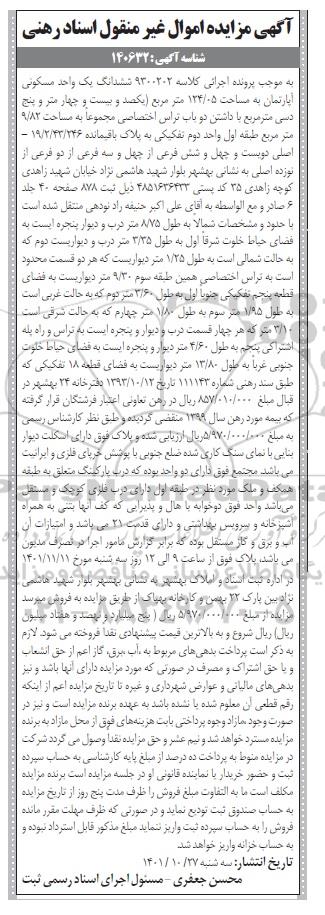 آگهی مزایده اموال غیر منقول اسناد رهنی
شناسه آگهی: ۱۴۰۶۳۲۰
به موجب پرونده اجرائی کلاسه ۹۳۰۰۲۰۲ ششدانگ یک واحد مسکونی
آپارتمان به مساحت ۱۲۴/۰۵ متر مربع (یکصد و بیست و چهار متر و پنج
دسی مترمربع با داشتن دو باب تراس اختصاصی مجموعاً به مساحت ۹/۸۲
متر مربع طبقه اول واحد دوم تفکیکی به پلاک باقیمانده ۱۹/۲/۴۳/۲۴۶ –
اصلی دویست و چهل و شش فرعی از چهل و سه فرعی از دو فرعی از
نوزده اصلی به نشانی بهشهر بلوار شهید هاشمی نژاد خیابان شهید زاهدی
کوچه زاهدی ۳۵ کد پستی ۴۸۵۱۶۳۶۴۳۳ ذیل ثبت ۸۷۸ صفحه ۴۰ جلد
۶ صادر و مع الواسطه به آقای علی اکبر حنیفه راد نودهی منتقل شده است
با حدود و مشخصات شمالاً به طول ۸/۷۵ متر درب و دیوار پنجره ایست به
فضای حیاط خلوت شرقاً اول به طول ۳/۳۵ متر درب و دیواریست دوم که
به حالت شمالی است به طول ۱/۲۵ متر دیواریست که هر دو قسمت محدود
است به تراس اختصاصی همین طبقه سوم ۹/۳۰ متر دیواریست به فضای
قطعه پنجم تفکیکی جنوباً اول به طول ۳/۶۰ متر دوم که به حالت غربی است
به طول ۱/۹۵ متر سوم به طول ۱/۸۰ متر چهارم که به حالت شرقی است
۳/۱۰ متر که هر چهار قسمت درب و دیوار و پنجره ایست به تراس و راه پله
اشتراکی پنجم به طول ۴/۶۰ متر دیوار و پنجره ایست به فضای حیاط خلوت
جنوبی غرباً به طول ۱۳/۸۰ متر دیواریست به فضای قطعه ۱۸ تفکیکی که
طبق سند رهنی شماره ۱۱۱۱۴۳ تاریخ ۱۳۹۳/۱۰/۱۲ دفترخانه ۲۴ بهشهر در
قبال مبلغ ۸۵۷/۰۱۰/۰۰۰ ریال در رهن تعاونی اعتبار فرشتگان قرار گرفته
که بیمه مورد رهن سال ۱۳۹۹ منقضی گردیده و طبق نظر کارشناس رسمی
به مبلغ ۵/۹۷۰/۰۰۰/۰۰۰ ریال ارزیابی شده و پلاک فوق دارای اسکلت دیوار
بنایی با نمای سنگ کاری شده ضلع جنوبی با پوشش خرپای فلزی و ایرانیت
می باشد. مجتمع فوق دارای دو واحد بوده که درب پارکینگ متعلق به طبقه
همکف و ملک مورد نظر در طبقه اول دارای درب فلزی کوچک و مستقل
می باشد واحد فوق دوخوابه با هال و پذیرایی که کف آنها بتنی به همراه
آشپزخانه و سرویس بهداشتی و دارای قدمت ۲۱ می باشد و امتیازات آن
آب و برق و گاز مستقل بوده که برابر گزارش مامور اجرا در تصرف مدیون
می باشد. پلاک فوق از ساعت ۹ الی ۱۲ روز سه شنبه مورخ ۱۴۰۱/۱۱/۱۱
در اداره ثبت اسناد و املاک بهشهر به نشانی بهشهر بلوار شهید هاشمی
نژاد بین پارک ۲۲ بهمن و کارخانه بهپاک از طریق مزایده به فروش میرسد
مزایده از مبلغ ۵/۹۷۰/۰۰۰/۰۰۰ ریال ( پنج میلیارد و نهصد و هفتاد میلیون
ریال) ریال شروع و به بالاترین قیمت پیشنهادی نقدا فروخته می شود. لازم
به ذکر است پرداخت بدهی‌های مربوط به ،آب ،برق، گاز اعم از حق انشعاب
و یا حق اشتراک و مصرف در صورتی که مورد مزایده دارای آنها باشد و نیز
بدهی‌های مالیاتی و عوارض شهرداری و غیره تا تاریخ مزایده اعم از اینکه
رقم قطعی آن معلوم شده یا نشده باشد به عهده برنده مزایده است و نیز در
صورت وجود ،مازاد وجوه پرداختی بابت هزینه‌های فوق از محل مازاد به برنده
مزایده مسترد خواهد شد و نیم عشر و حق مزایده نقدا وصول می گردد شرکت
در مزایده منوط به پرداخت ده درصد از مبلغ پایه کارشناسی به حساب سپرده
ثبت و حضور خریدار یا نماینده قانونی او در جلسه مزایده است برنده مزایده
مکلف است ما به التفاوت مبلغ فروش را ظرف مدت پنج روز از تاریخ مزایده
به حساب صندوق ثبت تودیع نماید و در صورتی که ظرف مهلت مقرر مانده
فروش را به حساب سپرده ثبت واریز ننماید مبلغ مذکور قابل استرداد نبوده و
به حساب خزانه واریز خواهد شد.
تاریخ انتشار: سه شنبه ۲۷/ ۱۰ / ۱۴۰۱
محسن جعفری – مسئول اجرای اسناد رسمی ثبت